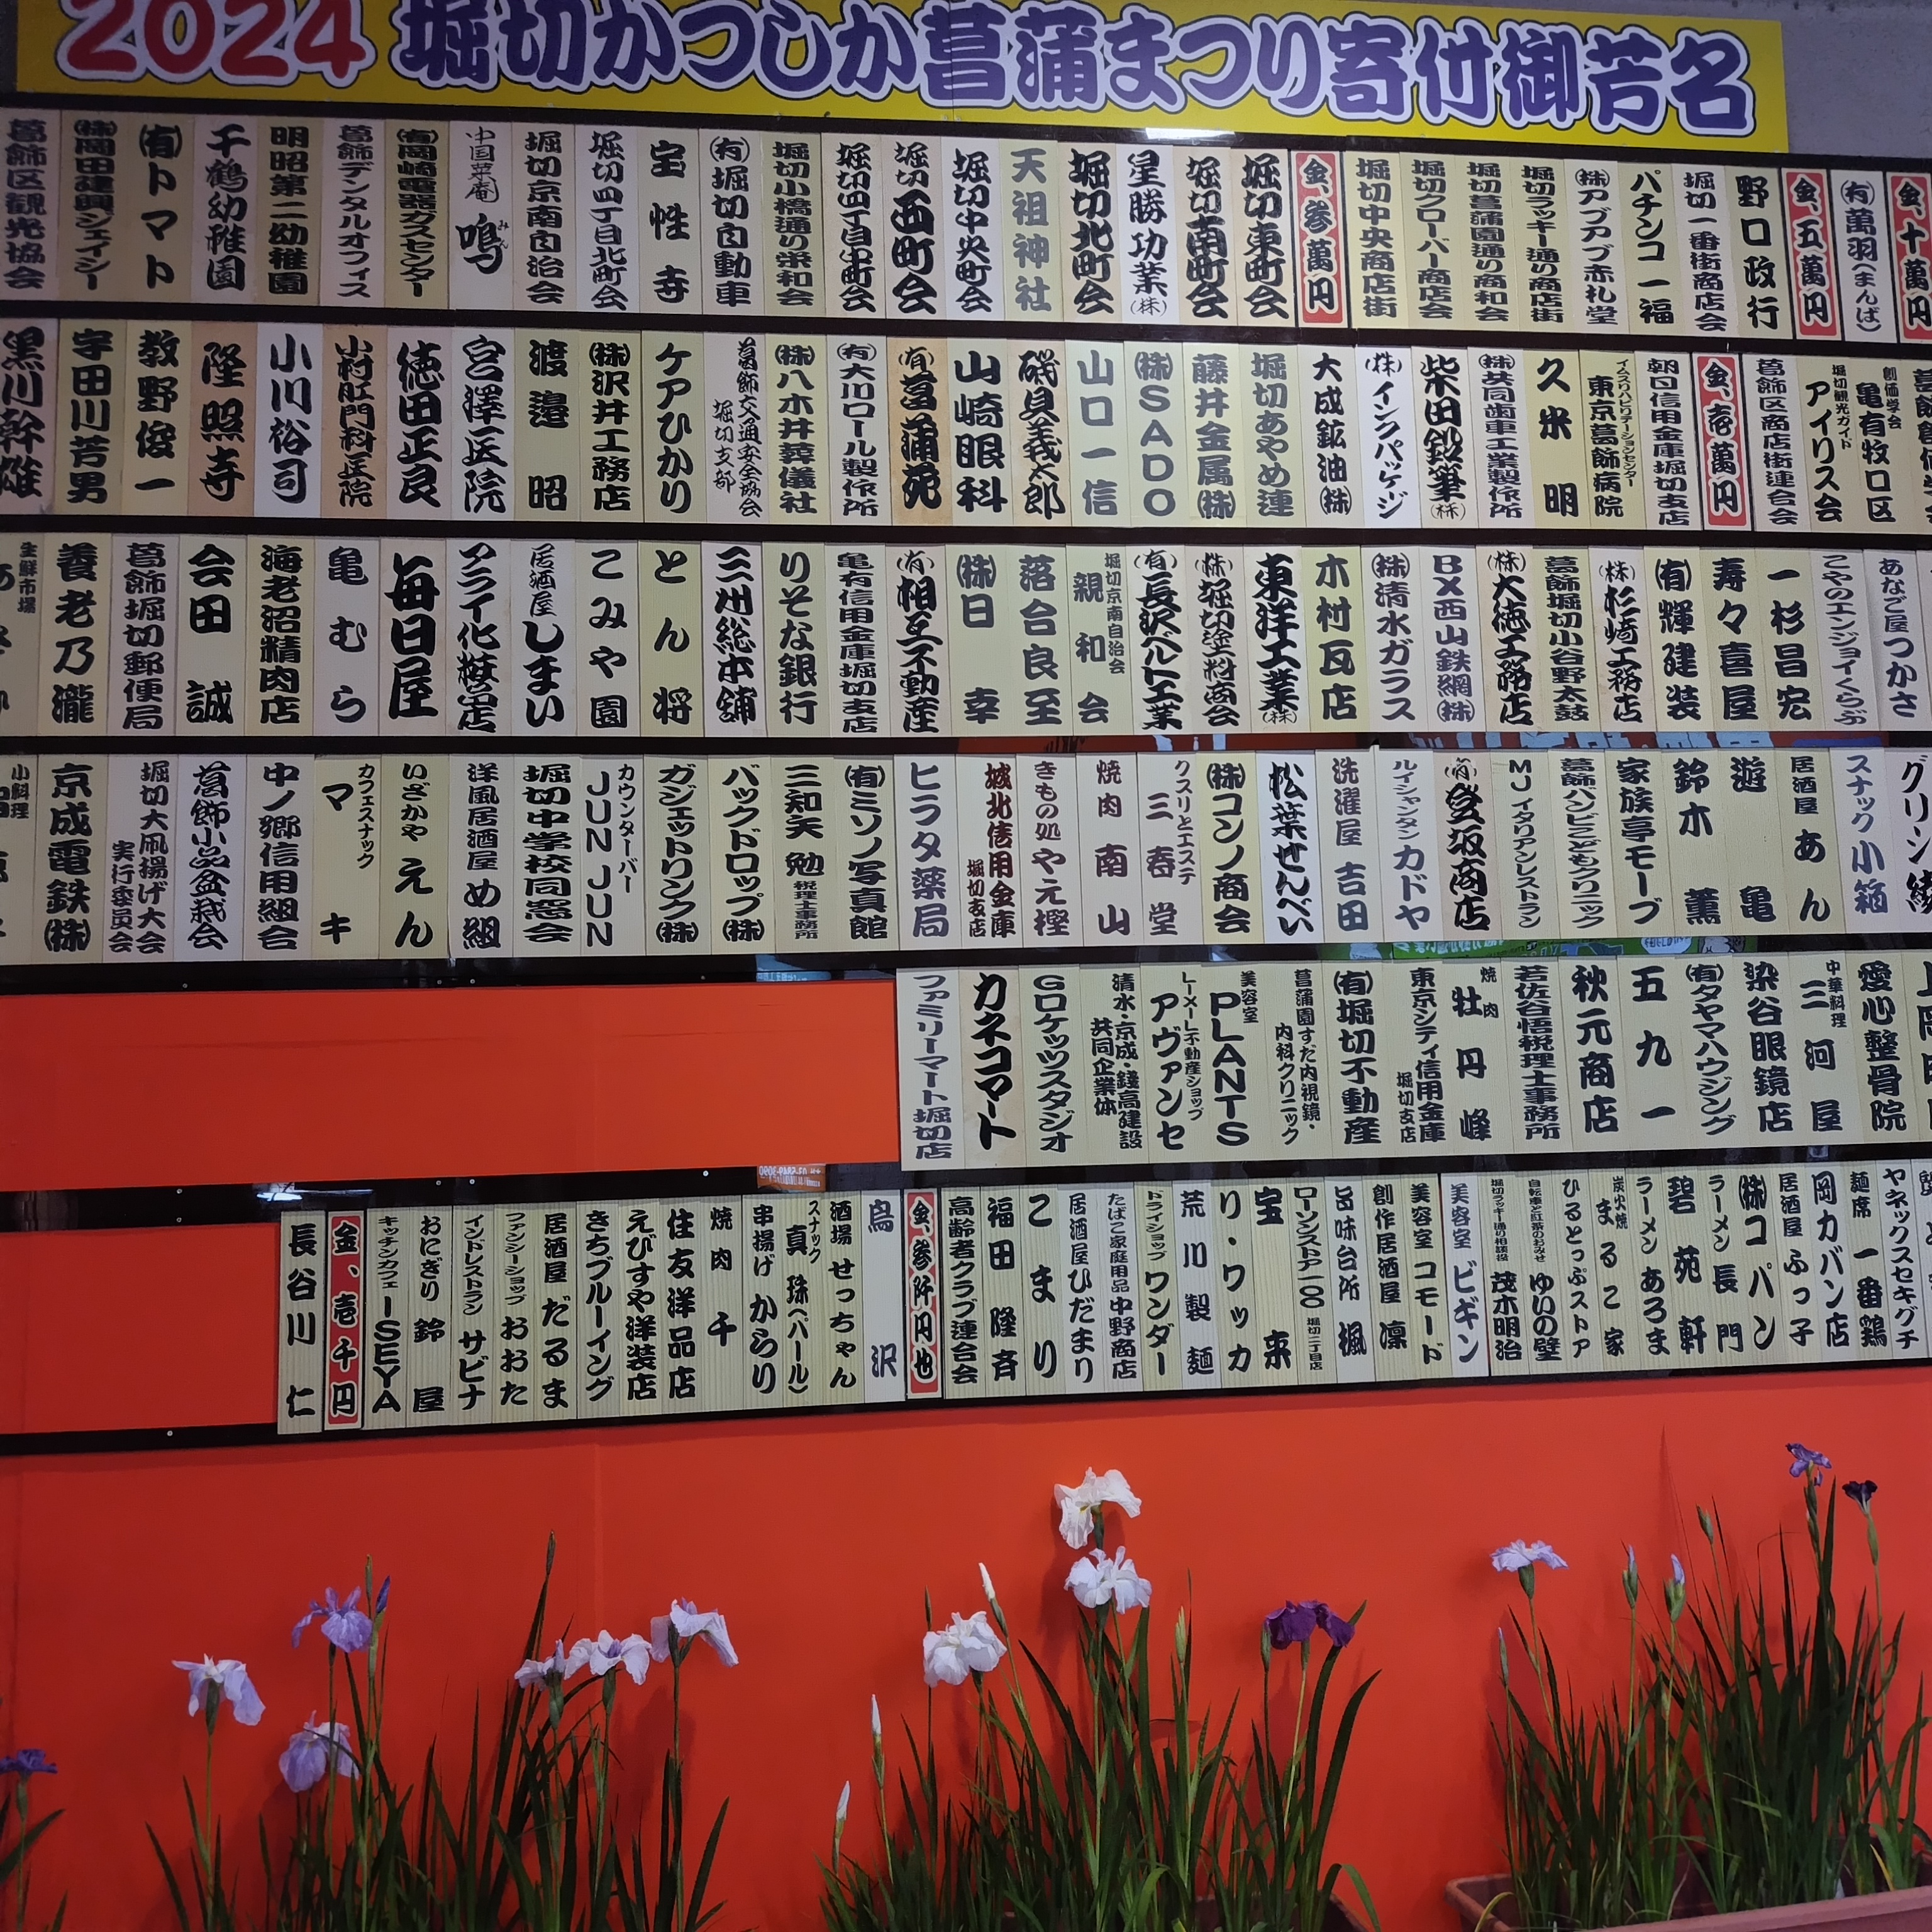 2024 堀切かつしか菖蒲まつり寄付御芳名
金、十萬円
(有)萬羽(まんば)
金、五萬円
野口政行
堀切一番街商店会
パチンコ一福
(株)アブアブ赤札堂
堀切ラッキー通り商店街
堀切菖蒲園通り商和会
堀切クローバー商店会
堀切中央商店街
金、参萬円
堀切東町会
堀切南町会
星勝功業(株)
堀切北町会
天祖神社
堀切中央町会
堀切西町会
堀切四丁目中町会
堀切小橋通り栄和会
(有)堀切自動車
宝性寺
堀切四丁目北町会
堀切京南自治会
中国菜庵 鳴 みん
(有)岡崎電器ガスセンター
葛飾デンタルオフィス
明昭第二幼稚園
千鶴幼稚園
(有)トマト
(株)岡田建興ジェイシー
葛飾区観光協会
創価学会 亀有牧口区
堀切観光ガイド アイリス会
葛飾区商店街連合会
金、壱萬円
朝日信用金庫堀切支店
イムスリハビリテーションセンター 東京葛飾病院
久米明
(株)共同歯車工業製作所
柴田鉛筆(株)
(株)インクパッケジ
大成鉱油(株)
堀切あやめ連
藤井金属(株)
(株)SADO
山口一信
磯貝義太郎
山崎眼科
(有)菖蒲苑
(有)大川ロール製作所
(株)八木井葬儀社
葛飾交通安全協会 堀切支部
ケアひかり
(株)沢井工務店
渡邉昭
宮澤医院
徳田正良
小村肛門科医院
小川裕司
隆照寺
教野俊一
宇田川芳男
黒川幹雄
あなご屋つかさ
こやのエンジョイくらぶ
一杉昌宏
寿々喜屋
(有)輝建装
(株)杉崎工務店
葛飾堀切小谷野太鼓
(株)大徳工務店
BX西山鉄網(株)
(株)清水ガラス
木村瓦店
東洋工業(株)
(株)堀切塗料商会
(有)長沢ベルト工業
堀切京南自治会 親和会
落合良至
(株)日幸
(有)相互不動産
亀有信用金庫堀切支店
りそな銀行
三州総本舗
とん将
こみや園
居酒屋しまい
アライ化粧品店
毎日屋
亀むら
海老沼精肉店
会田誠
葛飾堀切郵便局
養老乃瀧
スナック小箱
居酒屋あん
遊亀
鈴木薫
家族亭モーブ
葛飾バンビこどもクリニック
MJイタリアンレストラン
(有)登坂商店
ルイシャンタンカドヤ
洗濯屋吉田
松葉せんべい
(株)コンノ商会
クスリとエステ 三春堂
焼肉南山
きもの処やえ樫
城北信用金庫 堀切支店
ヒラタ薬局
(有)ミソノ写真館
三知矢勉税理士事務所
バックドロップ(株)
ガジェットリンク(株)
カウンターバー JUNJUN
堀切中学校同窓会
洋風居酒屋め組
いざかやえん
カフェスナック マキ
中ノ郷信用組合
葛飾小品盆栽会
堀切大凧揚げ大会 実行委員会
京成電鉄(株)
愛心整骨院
中華料理 三河屋
染谷眼鏡店
(有)タヤマハウジング
五九一
秋元商店
若佐谷悟税理士事務所
焼肉 牡丹峰
東京シティ信用金庫 堀切支店
(有)堀切不動産
菖蒲園すだ内視鏡・内科クリニック
美容室 PLANTS
レーメーレ不動産ショップ アヴァンセ
清水・京成・錢高建設 共同企業体
Gロケッツスタジオ
カネコマート
ファミリーマート堀切店
ヤネックスセキグチ
麺席 一番鶏
岡カバン店
居酒屋ふっ子
(株)コパン
ラーメン長門
碧苑軒
ラーメンあろま
炭火焼 まるこ家
ひるとっぷストア
自転車と紅茶のおみせ ゆいの壁
堀切ラッキー通り相談役 茂木明治
美容室 ビギン
美容室 コモード
創作居酒屋 凛
旨味台所 楓
ローソンストア一〇〇 堀切二丁目店
宝来
り・ワッカ
荒川製麺
ドライショップワンダー
たばこ家庭用品中野商店
居酒屋ひだまり
こまり
福田隆斉
高齢者クラブ連合会
金、参阡円也
鳥沢
酒場せっちゃん
スナック 真珠(パール)
串揚げからり
焼肉千
住友洋品店
えびすや洋装店
きちブルーイング
居酒屋だるま
ファンシーショップおおた
インドレストランサビナ
おにぎり鈴屋
キッチンカフェISEYA
金、壱千円
長谷川仁